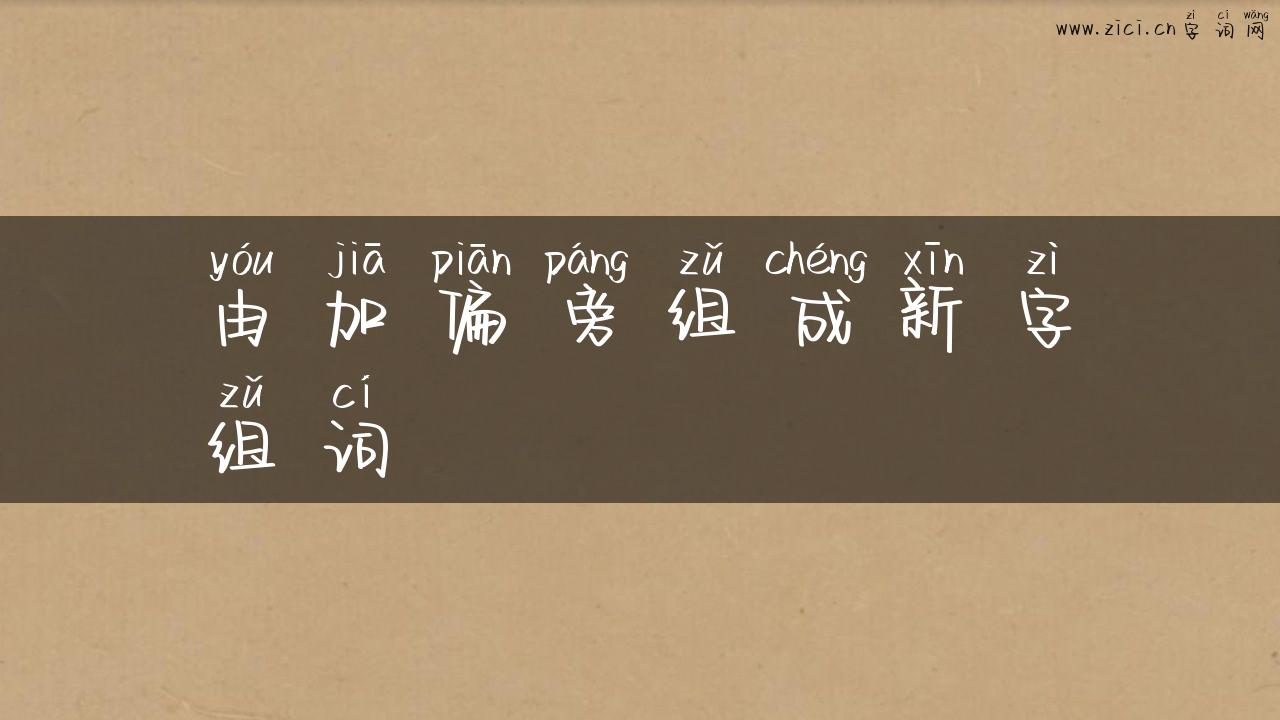 zì cí wǎng
www.zici.cn 字词网
yóu jiā piān páng zǔ chéng xīn zì
由加偏旁组成新字
zǔ cí
组词